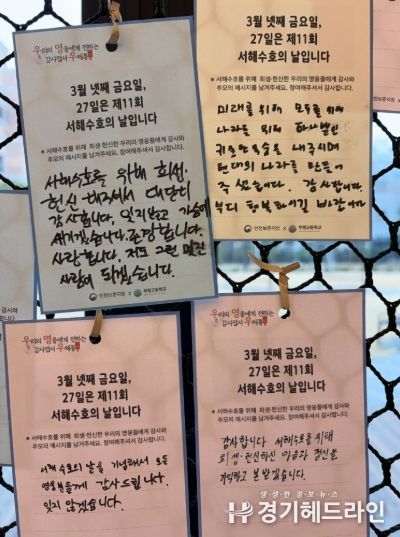 우리의 영웅에게 전하는
감사엽서 우체통
3월 넷째 금요일,
27일은 제11회
서해수호의 날입니다
※ 서해수호를 위해 희생·헌신한 우리의 영웅들에게 감사와
추모의 메시지를 남겨주세요. 참여해주셔서 감사합니다.
서해수호를 위해 희생
헌신 해주셔서 대단히
감사합니다. 잊지않고 가슴에
새기겠습니다. 존경합니다.
사랑합니다. 저도 그런 멋진
사람이 되겠습니다.
인천보훈지청 X 부평고등학교
3월 넷째 금요일,
27일은 제11회
서해수호의 날입니다
※ 서해수호를 위해 희생·헌신한 우리의 영웅들에게 감사와
추모의 메시지를 남겨주세요. 참여해주셔서 감사합니다.
미래를 위해 모두를 위해
나라를 위해 하나뿐인
귀중한 목숨을 내주시며
현대의 나라를 만들어
주셨습니다. 감사합니다.
부디 행복하시길 바랍니다
인천보훈지청 X 부평고등학교
우리의 영웅에게 전하는
감사엽서 우체통
3월 넷째 금요일,
27일은 제11회
서해수호의 날입니다
※ 서해수호를 위해 희생·헌신한 우리의 영웅들에게 감사와
추모의 메시지를 남겨주세요. 참여해주셔서 감사합니다.
서해 수호의 날을 기념해서 모든
영웅분들께 감사드립니다.
잊지 않겠습니다.
우리의 영웅에게 전하는
감사엽서 우체통
3월 넷째 금요일,
27일은 제11회
서해수호의 날입니다
※ 서해수호를 위해 희생·헌신한 우리의 영웅들에게 감사와
추모의 메시지를 남겨주세요. 참여해주셔서 감사합니다.
감사합니다 서해수호를 위해
희생·헌신하신 마음과 정신을
기억하고 본받겠습니다.
생생한 경보뉴스
경기헤드라인